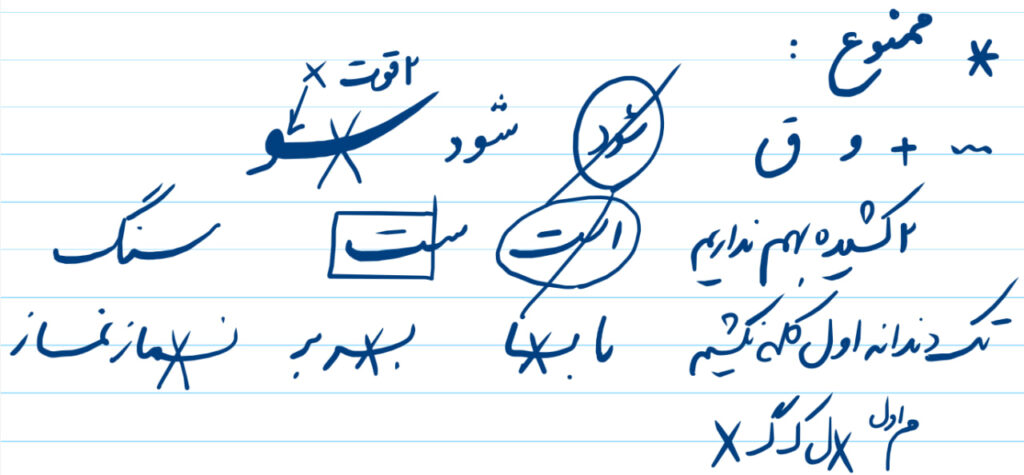 * ممنوع :
۲ قوت ×
سـ + و ق شود شود شو
۲ کشیده بهم نداریم است ست سنگ
تک دندانه اول کلمه نکشیم ما بنا بر بر نماز نماز
م اول ل ک گ ×